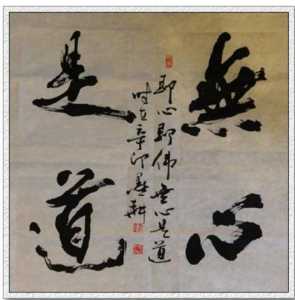 無心
是道
即心即佛無心是道
时在辛卯